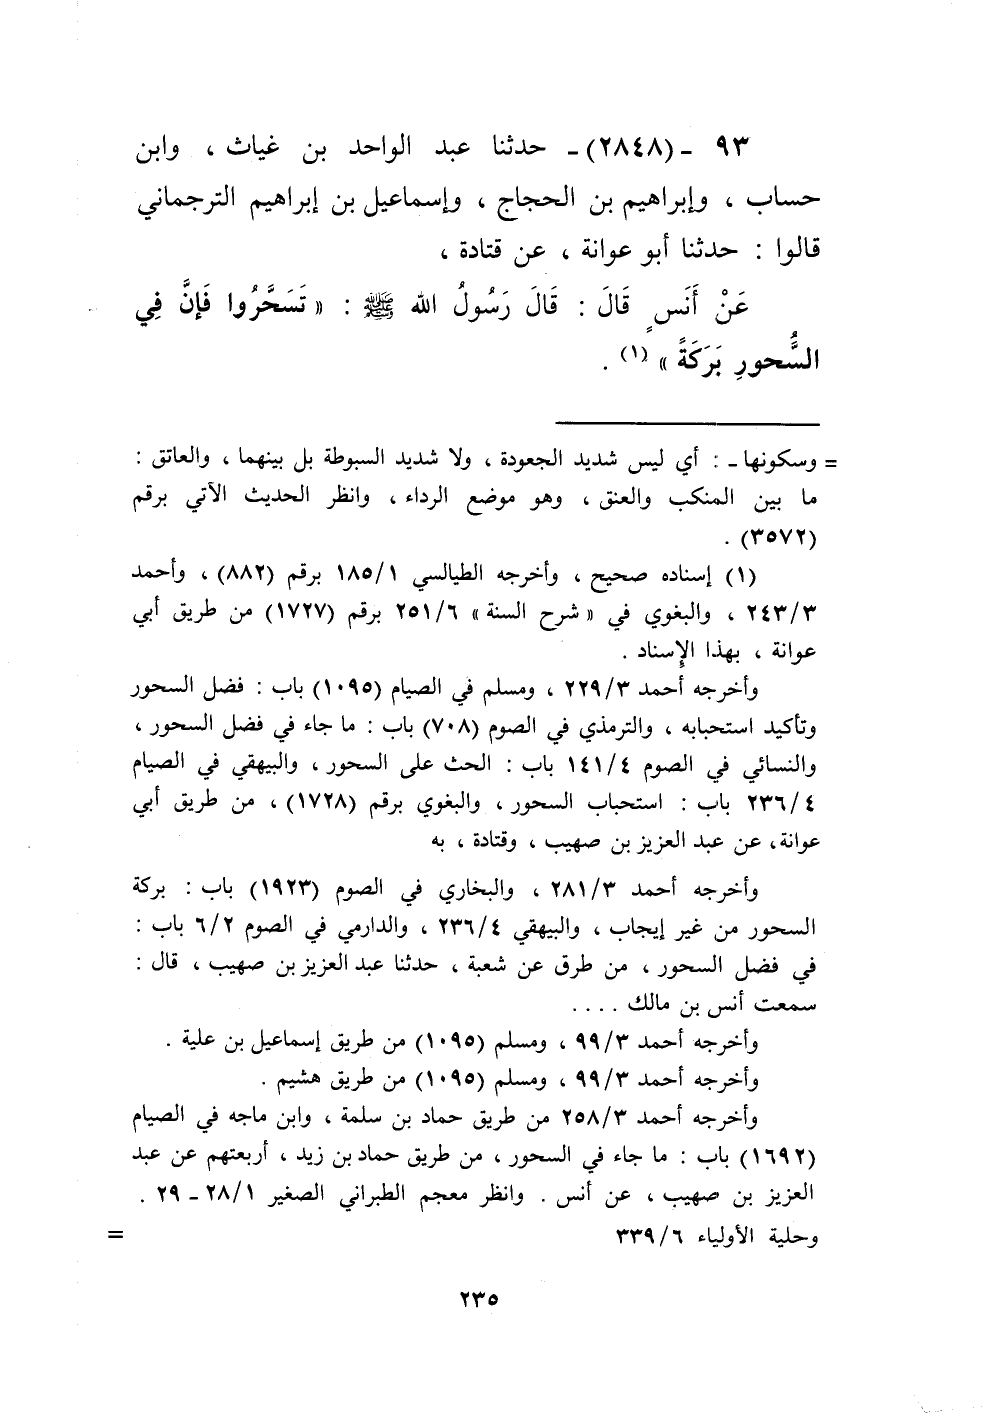 ٩٣ - (٢٨٤٨) - حدثنا عبد الواحد بن غياث ، وابن
حساب ، وإبراهيم بن الحجاج ، وإسماعيل بن إبراهيم الترجماني
قالوا : حدثنا أبو عوانة ، عن قتادة ،
عَنْ أَنَسٍ قَالَ : قَالَ رَسُولُ الله ﷺ : « تَسَحَّرُوا فَإِنَّ فِي
السُّحورِ بَرَكَةً » (١) .
= وسكونها - : أي ليس شديد الجعودة ، ولا شديد السبوطة بل بينهما ، والعاتق :
ما بين المنكب والعنق ، وهو موضع الرداء ، وانظر الحديث الآتي برقم
(٣٥٧٢) .
(١) إسناده صحيح ، وأخرجه الطيالسي ١/١٨٥ برقم (٨٨٢) ، وأحمد
٢٤٣/٣ ، والبغوي في « شرح السنة » ٢٥١/٦ برقم (١٧٢٧) من طريق أبي
عوانة ، بهذا الإسناد .
وأخرجه أحمد ٢٢٩/٣ ، ومسلم في الصيام (١٠٩٥) باب : فضل السحور
وتأكيد استحبابه ، والترمذي في الصوم (٧٠٨) باب : ما جاء في فضل السحور ،
والنسائي في الصوم ١٤١/٤ باب : الحث على السحور ، والبيهقي في الصيام
٢٣٦/٤ باب : استحباب السحور ، والبغوي برقم (١٧٢٨) ، من طريق أبي
عوانة، عن عبد العزيز بن صهيب ، وقتادة ، به
وأخرجه أحمد ٢٨١/٣ ، والبخاري في الصوم (١٩٢٣) باب : بركة
السحور من غير إيجاب ، والبيهقي ٢٣٦/٤ ، والدارمي في الصوم ٦/٢ باب :
في فضل السحور ، من طرق عن شعبة ، حدثنا عبد العزيز بن صهيب ، قال :
سمعت أنس بن مالك ....
وأخرجه أحمد ٩٩/٣ ، ومسلم (١٠٩٥) من طريق إسماعيل بن علية .
وأخرجه أحمد ٩٩/٣ ، ومسلم (١٠٩٥) من طريق هشيم .
وأخرجه أحمد ٢٥٨/٣ من طريق حماد بن سلمة ، وابن ماجه في الصيام
(١٦٩٢) باب : ما جاء في السحور ، من طريق حماد بن زيد ، أربعتهم عن عبد
العزيز بن صهيب ، عن أنس . وانظر معجم الطبراني الصغير ٢٨/١ - ٢٩ .
وحلية الأولياء ٣٣٩/٦ =
٢٣٥